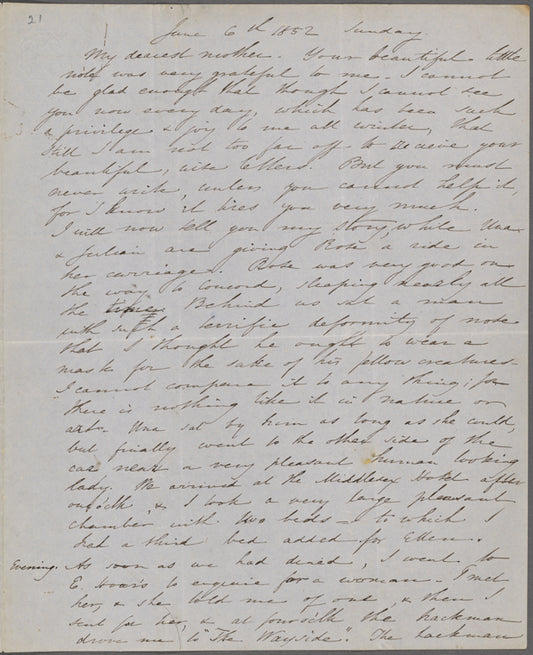 21
June 6th 1852 Sunday.
My dearest mother. Your beautiful little
note was very grateful to me. I cannot
be glad enough that though I cannot see
you now every day, which has been such
a privilege & joy to me all winter, that
still I am not too far off to receive your
beautiful, wise letters. But you must
never write, unless you cannot help it,
for I know it tires you very much.
I will now tell you my story, while Una
& Julian are giving Rose a ride in
her carriage. Rose was very good on
the way to Concord, sleeping nearly all
the time. Behind us sat a man
with such a terrific deformity of nose
that I thought he ought to wear a
mask for the sake of his fellow creatures.
I cannot compare it to any thing; for
there is nothing like it in nature or
art. Una sat by him as long as she could,
but finally went to the other side of the
car near a very pleasant human looking
lady. We arrived at the Middlesex hotel after
one o'clk, & I took a very large pleasant
chamber with two beds = to which I
had a third bed added for Ellen.
Evening. As soon as we had dined, I went to
E. Hoar's to enquire for a woman. I met
her, & she told me of one, & then I
sent for her, & at four o'clk the hackman
drove me to "The Wayside." The hackman